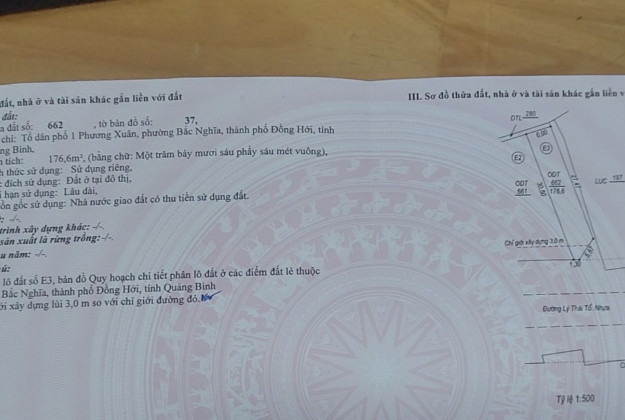 đất, nhà ở và tài sản khác gắn liền với đất
đất:
a đất số: 662 , tờ bản đồ số: 37,
chỉ: Tổ dân phố 1 Phương Xuân, phường Bắc Nghĩa, thành phố Đồng Hới, tỉnh
ng Bình,
n tích: 176,6m², (bằng chữ: Một trăm bảy mươi sáu phẩy sáu mét vuông),
h thức sử dụng: Sử dụng riêng,
đích sử dụng: Đất ở tại đô thị,
i hạn sử dụng: Lâu dài,
ồn gốc sử dụng: Nhà nước giao đất có thu tiền sử dụng đất.
: -/-.
trình xây dựng khác: -/-.
sản xuất là rừng trồng:-/-.
u năm: -/-.
ú:
lô đất số E3, bản đồ Quy hoạch chi tiết phân lô đất ở các điểm đất lẻ thuộc
Bắc Nghĩa, thành phố Đồng Hới, tỉnh Quảng Bình
ới xây dựng lùi 3,0 m so với chỉ giới đường đỏ.
III. Sơ đồ thửa đất, nhà ở và tài sản khác gắn liền v
DTL 280
6.00
E2
E3
ODT
661
ODT
662
176,6
LUC 197
Chỉ giới xây dựng 3.0 m
Đường Lý Thái Tổ, Nhựa
Tỷ lệ 1:500